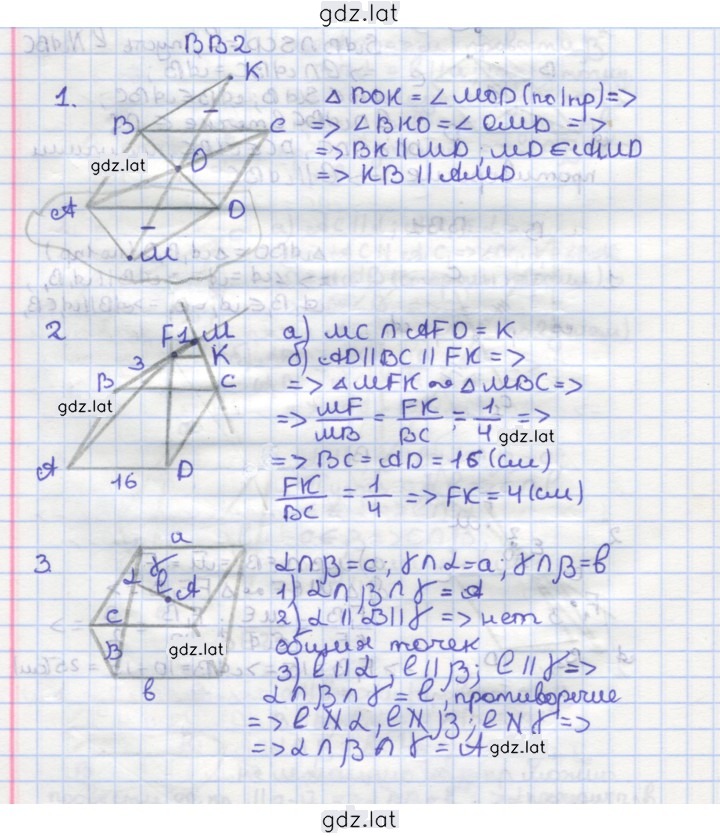 gdz.lat
ВВ-2
1.
K
B
C
gdz.lat
O
A
D
M
△ BOK = ∠MOD (по I пр) =>
=> ∠BKO = ∠OMD =>
=> BK || MD, MD ∈ AMD
=> KB || AMD
2
F 1 M
3
K
B
C
gdz.lat
A
16
D
а) MC ∩ AFD = K
б) AD || BC || FK =>
=> △MFK ∾ △MBC =>
=> MF/MB = FK/BC = 1/4 =>
gdz.lat
=> BC = AD = 16 (см)
FK/BC = 1/4 => FK = 4 (см)
3
a
α
γ
ℓ
A
C
gdz.lat
B
b
α ∩ β = c, γ ∩ α = a; γ ∩ β = b
1) α ∩ β ∩ γ = A
2) α || β || γ => нет
общих точек
3) ℓ || α, ℓ || β; ℓ || γ =>
α ∩ β ∩ γ = ℓ, противоречие
=> ℓ ∦ α, ℓ ∦ β; ℓ ∦ γ =>
=> α ∩ β ∩ γ = A
gdz.lat
gdz.lat